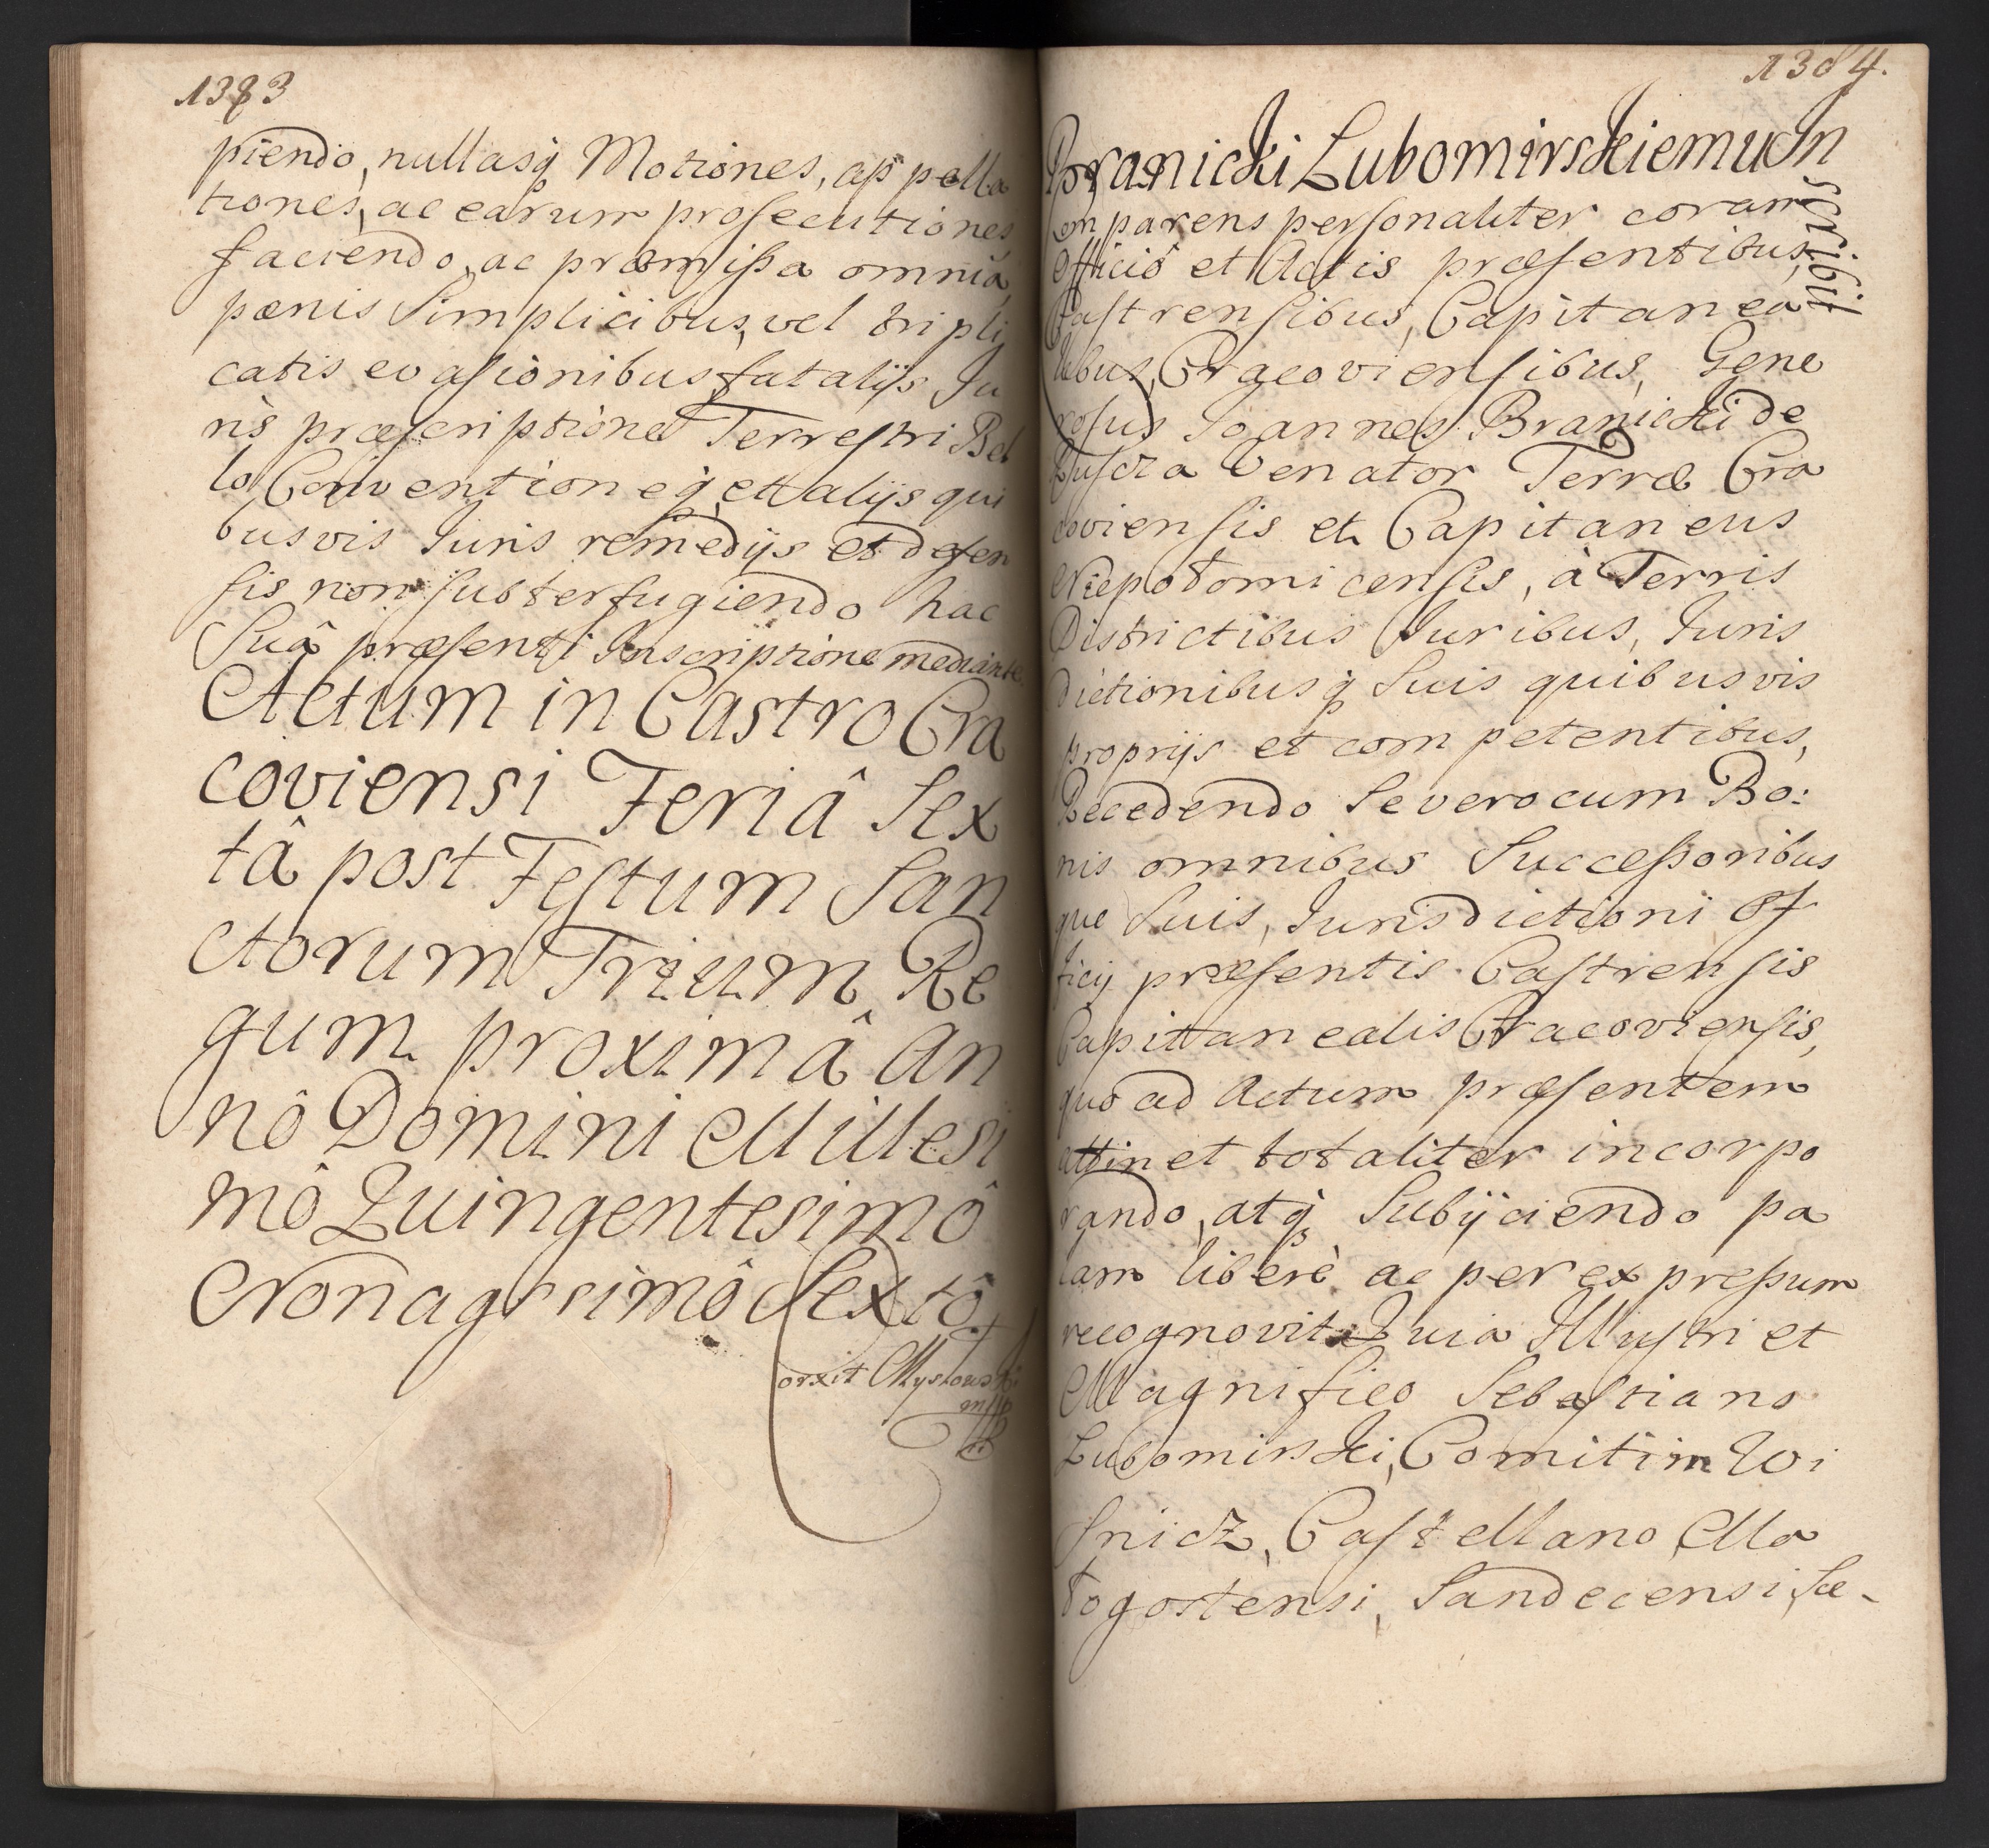 1383
piendo, nullasq́ Motiones, appella
tiones, ac earum prosecutiones
faciendo, ac præmißa omnia,
pœnis Simplicibus, vel tripli
catis evasionibus fatalijs Ju
ris præscriptione Terrestri Bel
lo, Conventioneq́, et alijs qui
busvis Juris remedijs et defen
sis non subterfugiendo hac
Suâ præsenti Inscriptione mediante.
Actum in Castro Cra
coviensi Feriâ Sex
tâ post Festum San
ctorum Trium Re
gum proximâ An
nô Domini Millesi
mô Quingentesimô
Nonagesimô Sextô.
mpp
1384.
Branicki Lubomirskiemu In
scribit.
Comparens personaliter coram
Officiô et Actis præsentibus,
Castrensibus, Capitanea
libus, Cracoviensibus, Gene
rosus Joannes Branicki de
Ruscza Venator Terræ Cra
coviensis et Capitaneus
Niepotomicensis, à Terris
Districtibus Juribus, Juris
dictionibusq́ Suis quibusvis
proprijs et competentibus,
Recedendo Severo cum Bo:
nis omnibus Succeßoribus
que Suis, Jurisdictioni Of
ficij præsentis Castrensis
Capittanealis Cracoviensis,
quo ad Actum præsentem
attinet totaliter incorpo
rando, atq́ Subijciendo pa
lam liberè ac per expreßum
recognovit Quia Illustri et
Magnifico Sebastiano
Lubomirski, Comiti in Wi
snicz, Castellano Ma
togostensi, Sandecensi, Sæ-